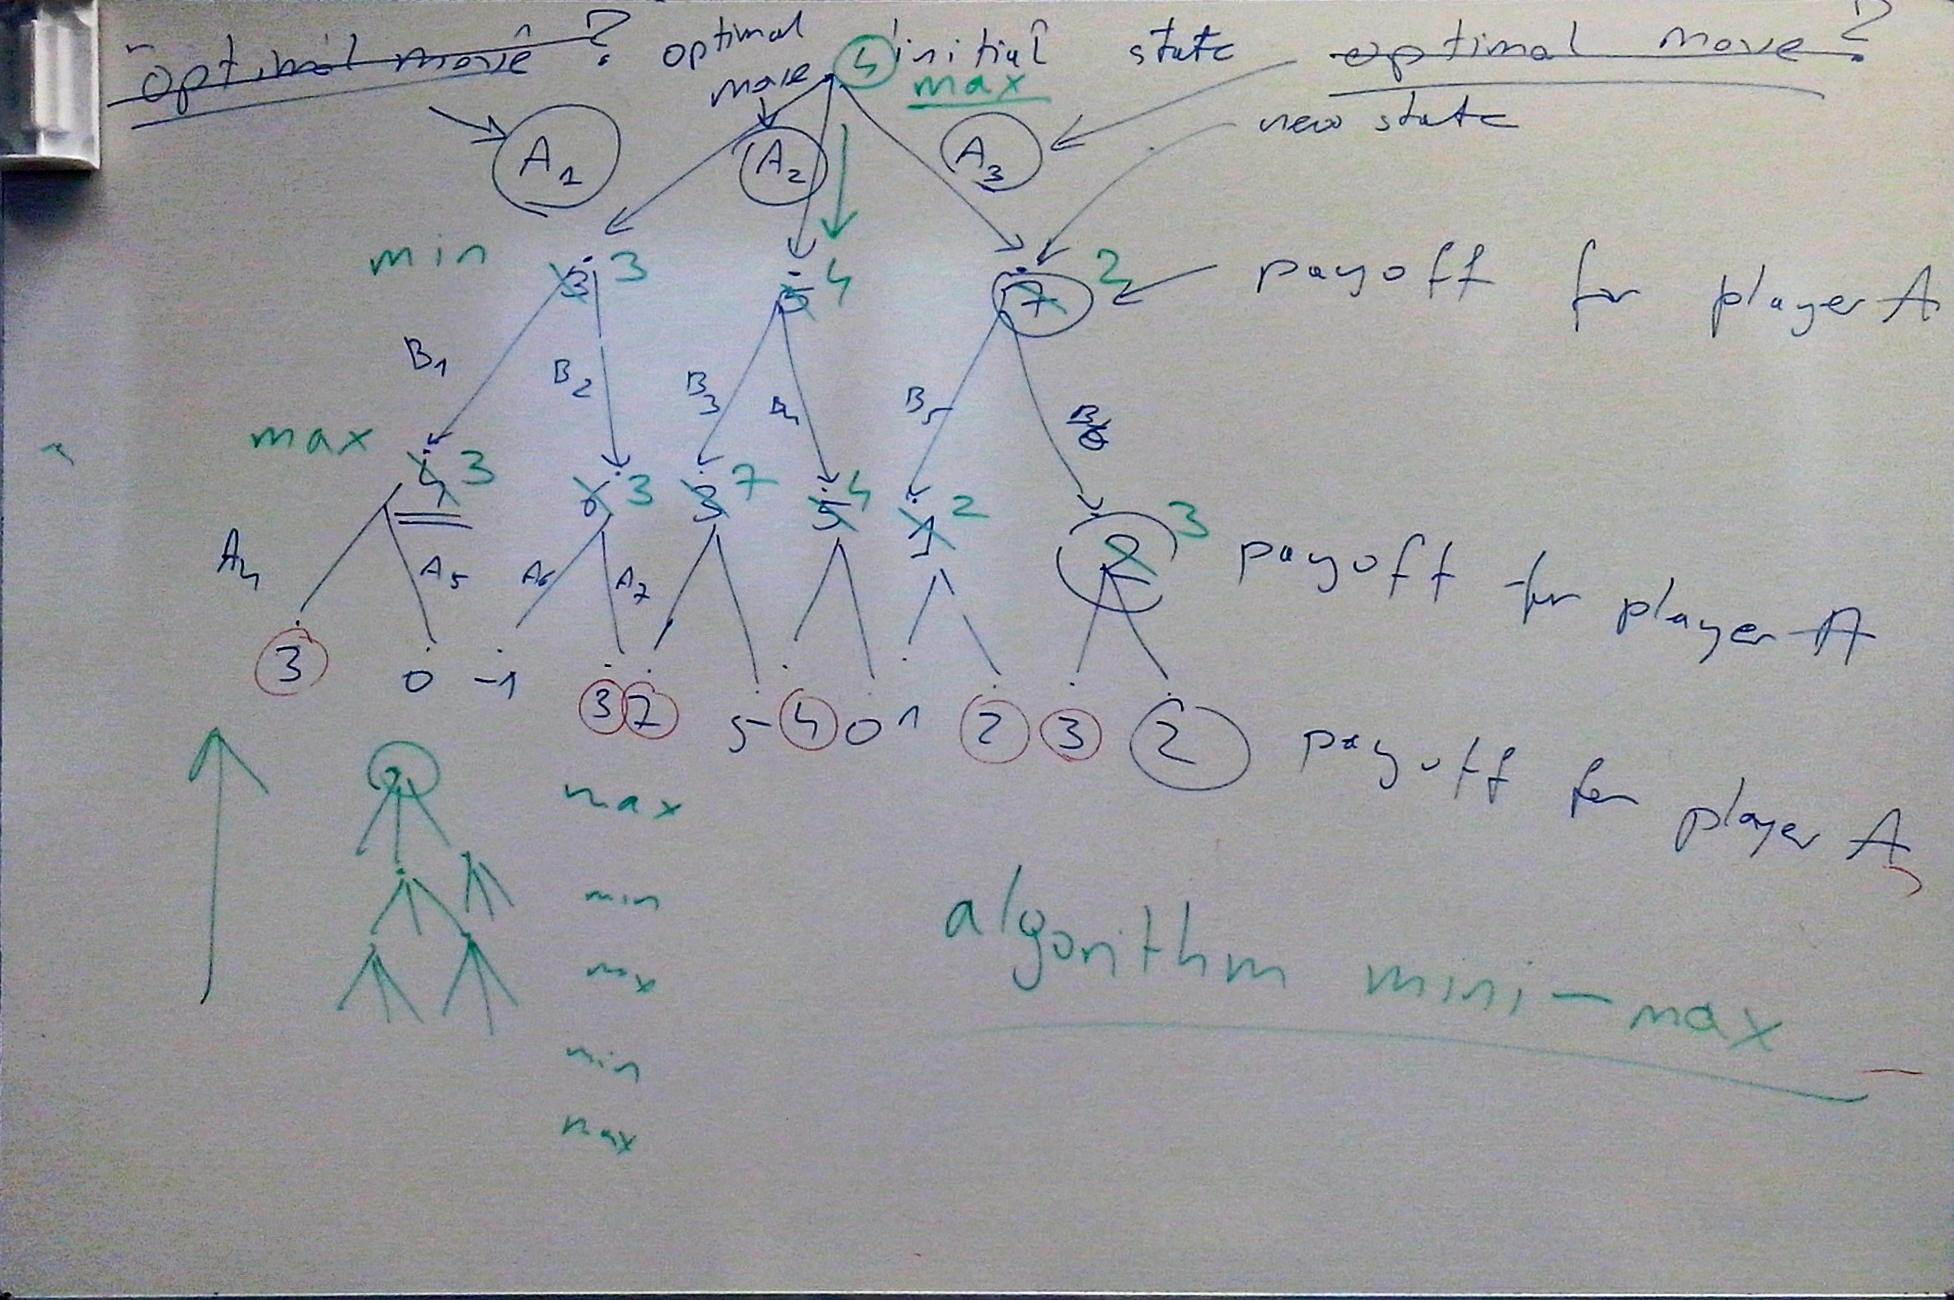 optimal move? optimal move 4 initial state optimal move?
max
new state
A1 A2 A3
min 3 3 5 4 7 2 payoff for player A
B1 B2 B3 B4 B5 B6
max 4 3 3 3 7 5 4 1 2 2 3 payoff for player A
A4 A5 A6 A7
3 0 -1 3 7 5 4 0 1 2 3 2 payoff for player A
max
min
max
min
max
algorithm mini-max